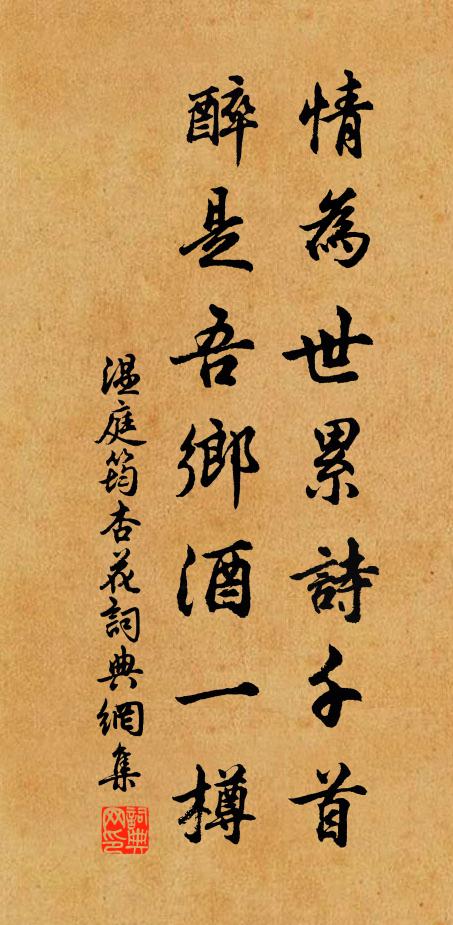 情為世累詩千首
醉是吾鄉酒一樽
溫庭筠杏花詞典網集
詞典網印